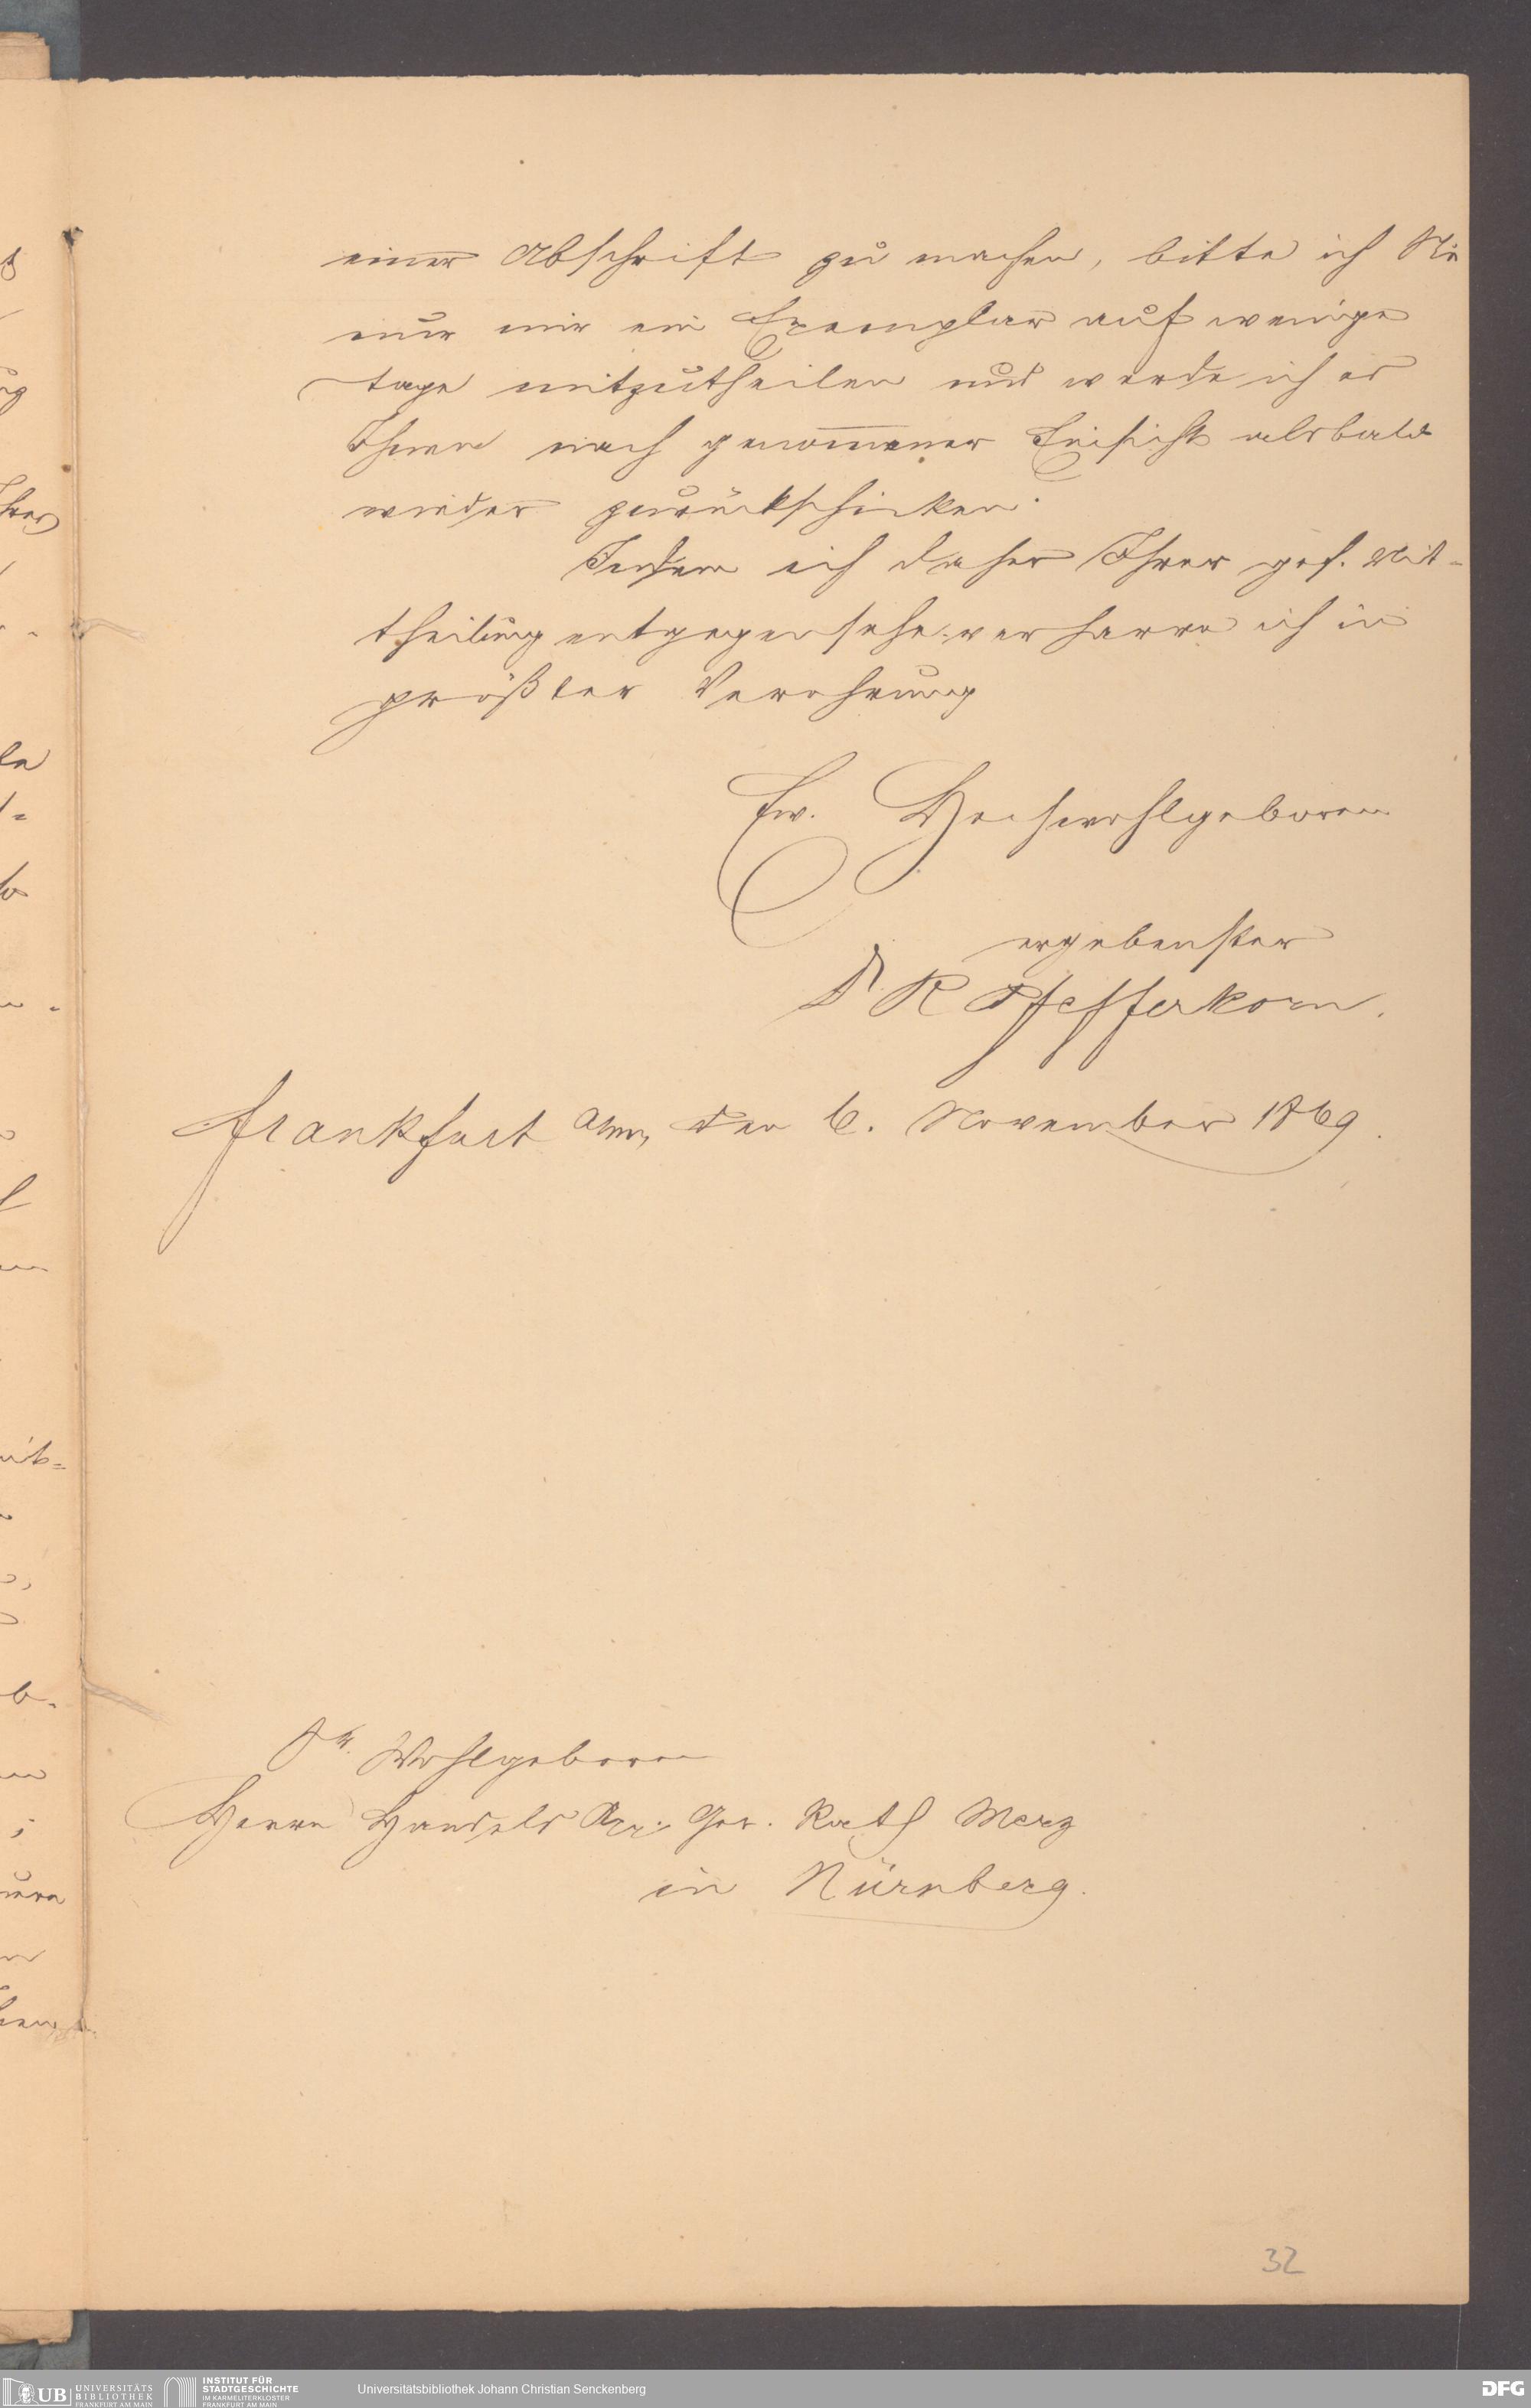 einer Abschrift zu machen, bitte ich Sie
nur mir ein Exemplar auf wenige
Tage mitzutheilen und werde ich es
Ihnen nach genom̄ener Einsicht alsbald
wieder zurückschicken.
Indem ich daher Ihrer gef. Mit-
theilung entgegensehe verharre ich in
größter Verehrung
Ew. Hochwohlgeboren
ergebenster
Dr R Pfefferkorn.
Frankfurt a/m, den 6. November 1869.
Sr. Wohlgeboren
Herrn Handels App. Ger. Rath Merz
in Nürnberg.
32
UB UNIVERSITÄTS
BIBLIOTHEK
FRANKFURT AM MAIN
INSTITUT FÜR
STADTGESCHICHTE
IM KARMELITERKLOSTER
FRANKFURT AM MAIN
Universitätsbibliothek Johann Christian Senckenberg
DFG